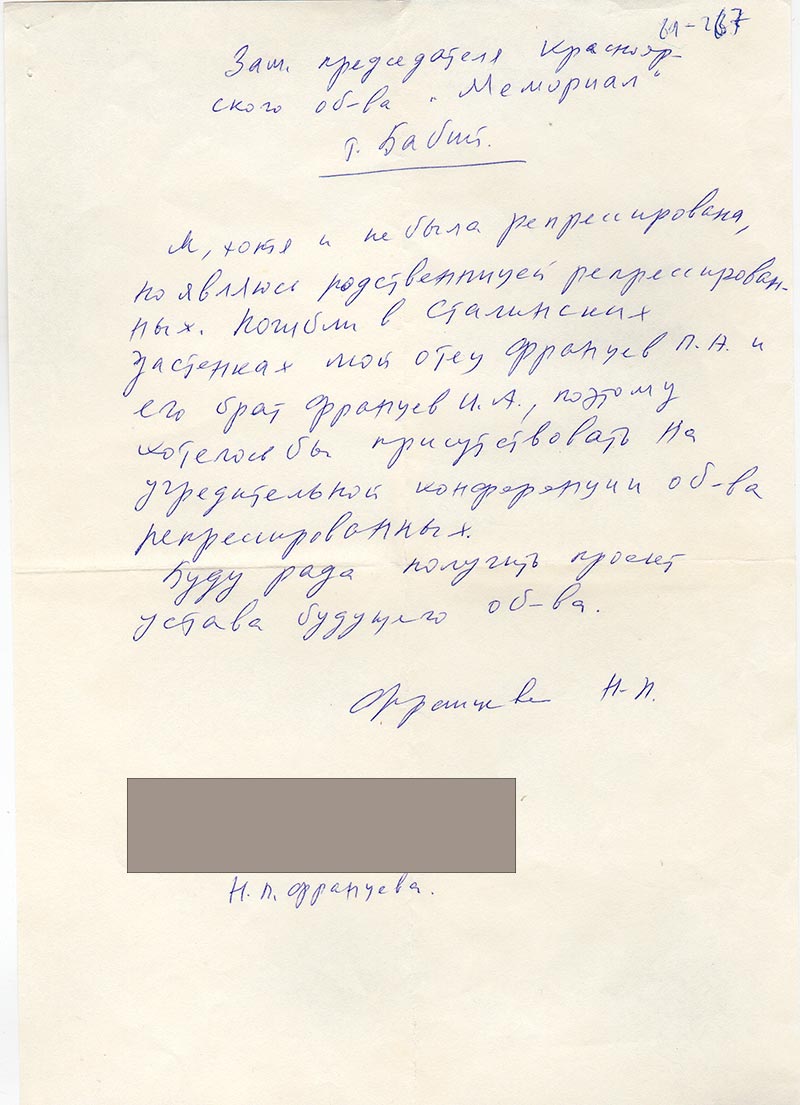 Зам. председателя Краснояр-
ского об-ва "Мемориал"
т. Бабий.
Я, хотя и не была репрессирована,
но являюсь родственницей репрессирован-
ных. Погибли в Сталинских
застенках мой отец Францев П.А. и
его брат Францев И.А., поэтому
хотелось бы присутствовать на
учредительной конференции об-ва
репрессированных.
Буду рада получить проект
устава будущего об-ва.
Францева Н.П.
Н.П. Францева.